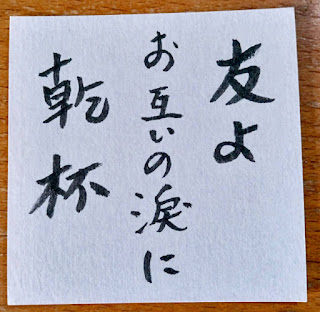 友よ
お互いの涙に
乾杯